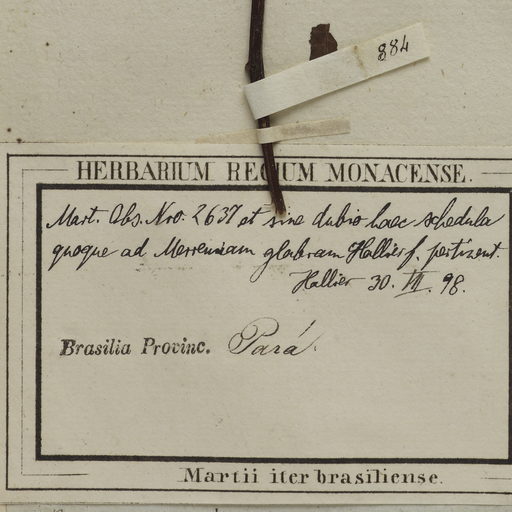 884
HERBARIUM REGIUM MONACENSE.
Mart. Obs. Nro. 2637 et sine dubio haec schedula
quoque ad Merremiam glabram Hallier f. pertinent.
Hallier 30. VII. 98.
Brasilia Provinc. Pará.
Martii iter brasiliense.